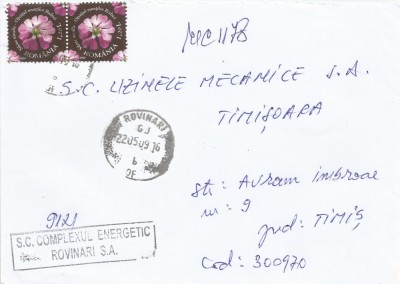 ROMÂNIA
ROMÂNIA
S.C. UZINELE MECANICE S.A.
TIMIȘOARA
ROVINARI
GJ
220509 16
str: Avram imbroae
nr: 9
jud: TIMIȘ
Cod: 300970
S.C. COMPLEXUL ENERGETIC
ROVINARI S.A.